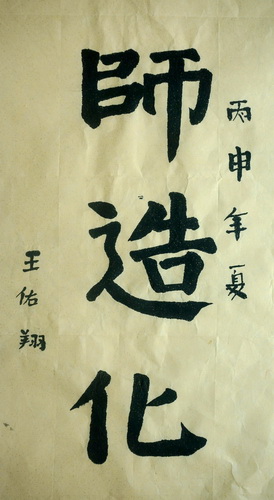 丙申年夏
師造化
王佑翔